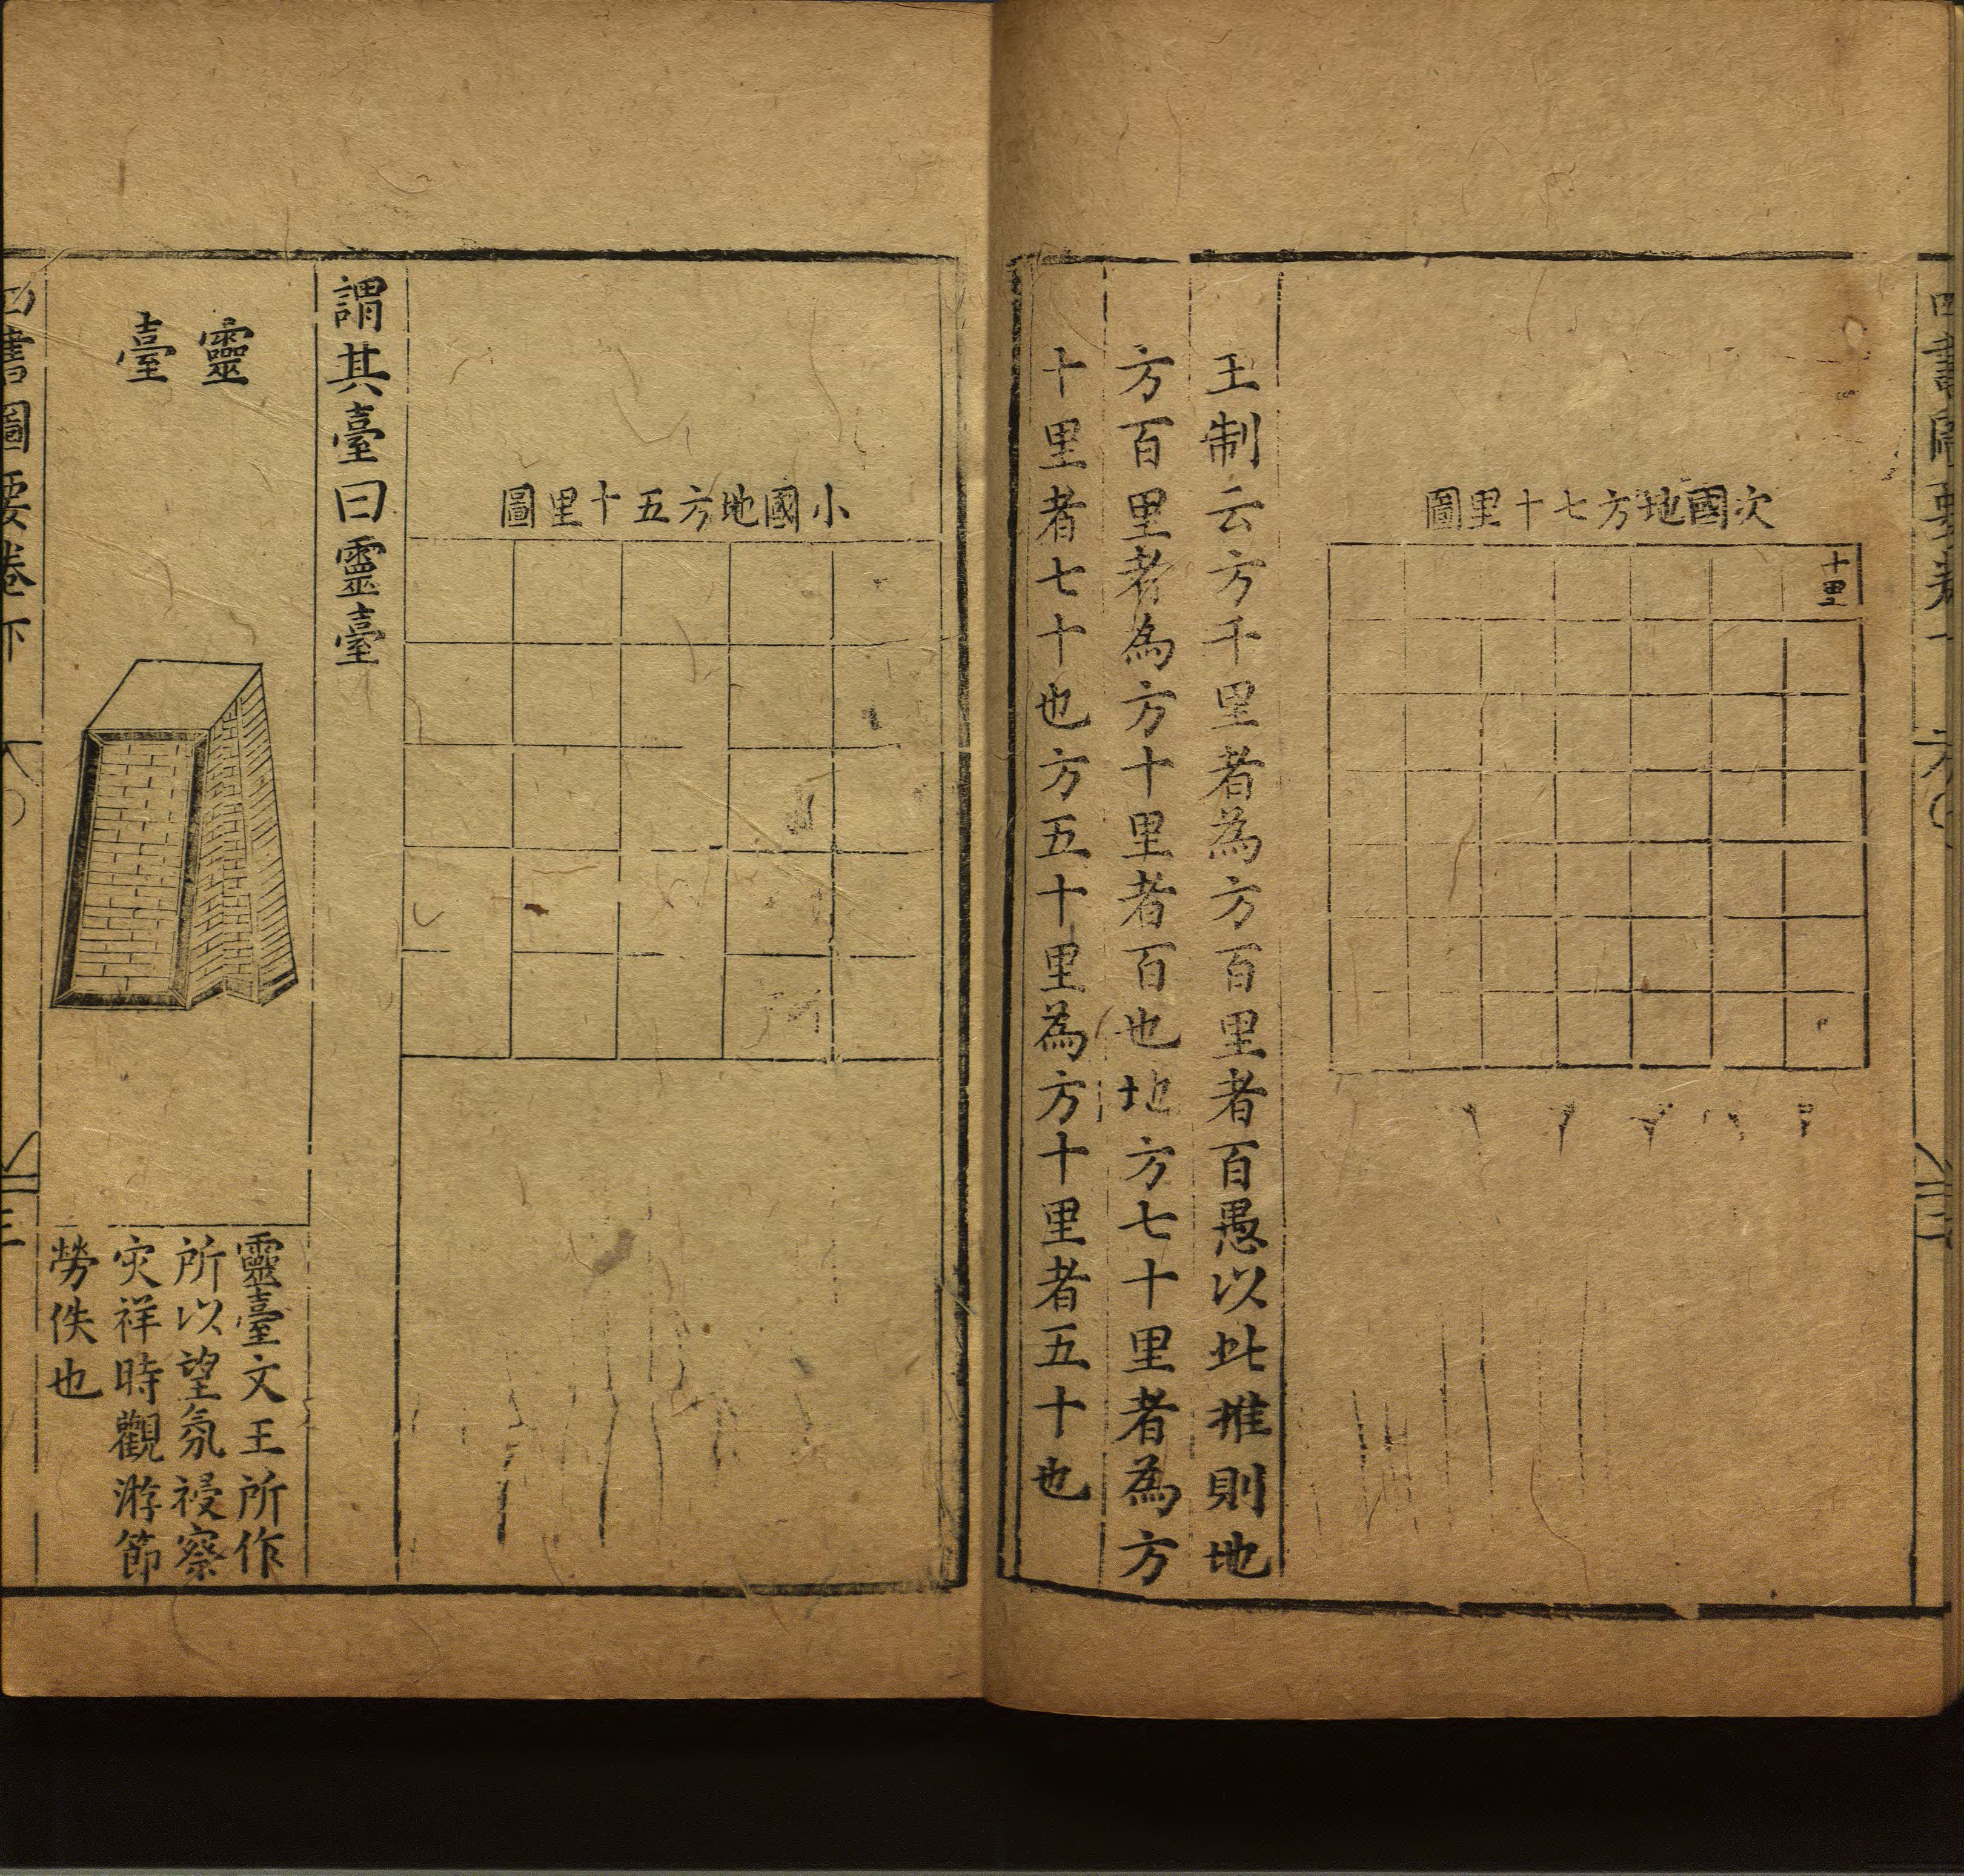 次國地方七十里圖
十里
王制云方千里者為方百里者百愚以此推則地
方百里者為方十里者百也地方七十里者為方
十里者七十也方五十里為方十里者五十也
小國地方五十里圖
謂其臺曰靈臺
靈
臺
靈臺文王所作
所以望氛祲察
灾祥時觀游節
勞佚也
四書圖要卷下